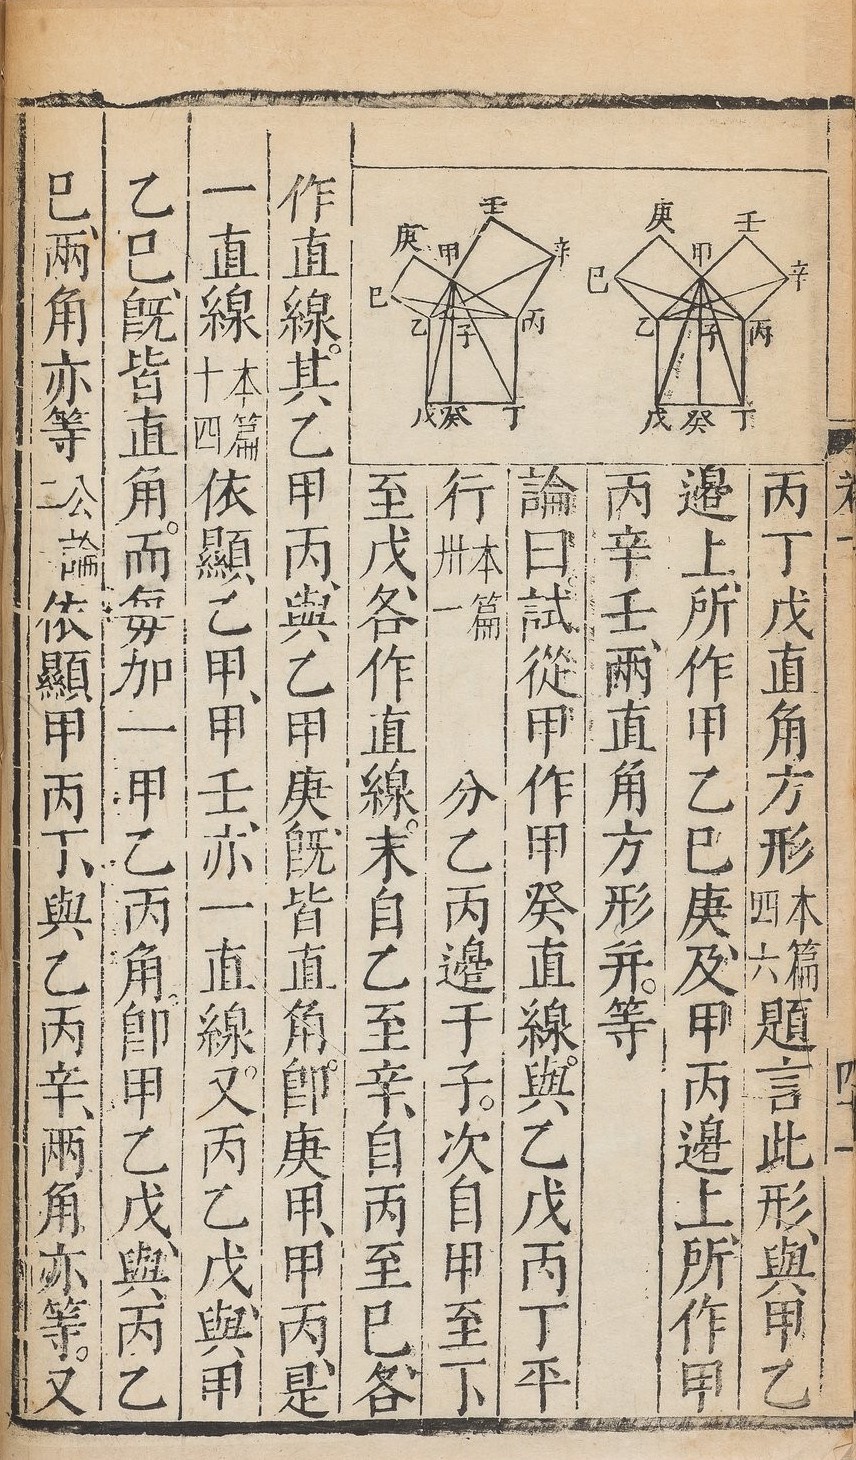 丙丁戊直角方形本篇四六題言此形、與甲乙
邊上、所作甲乙巳庚、及甲丙邊上、所作甲
丙辛壬、兩直角方形并。等
論曰。試從甲作甲癸直線。與乙戊丙丁平
行本篇卅一分乙丙邊于子。次自甲至丁
至戊、各作直線。末自乙至辛、自丙至巳、各
作直線。其乙甲丙、與乙甲庚、旣皆直角。卽庚甲、甲丙、是
一直線本篇十四依顯、乙甲、甲壬、亦一直線。又丙乙戊、與甲
乙巳、旣皆直角。而每加一甲乙丙角。卽甲乙戊、與丙乙
巳、兩角亦等公論二依顯甲丙丁、與乙丙辛、兩角亦等。又
庚 壬
甲 辛
巳
乙 子 丙
戊 癸 丁
壬
庚 甲 辛
巳
乙 子 丙
戊 癸 丁